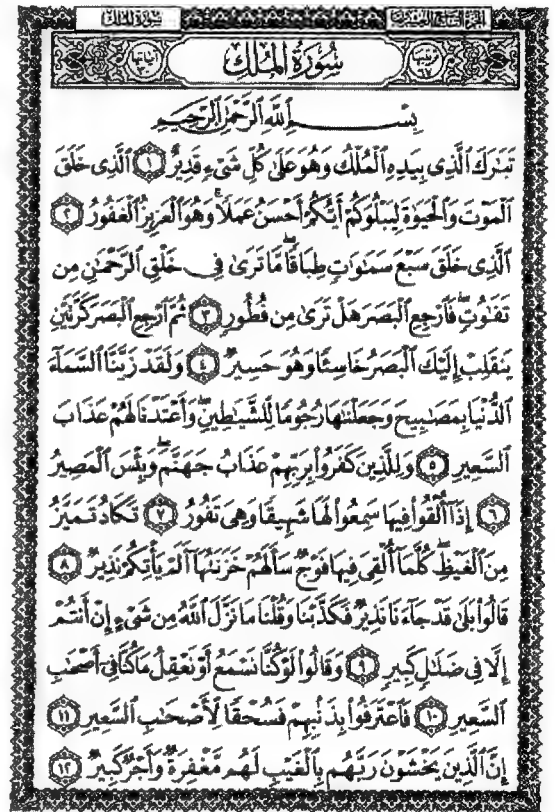 سُورَةُ المُلكِ الجزء التاسع والعشرون
ترتيبها ٦٧ سُورَةُ المُلكِ آياتها ٣٠
بِسْمِ اللَّهِ الرَّحْمَٰنِ الرَّحِيمِ
تَبَارَكَ الَّذِى بِيَدِهِ الْمُلْكُ وَهُوَ عَلَىٰ كُلِّ شَىْءٍ قَدِيرٌ ١ الَّذِى خَلَقَ
الْمَوْتَ وَالْحَيَوٰةَ لِيَبْلُوَكُمْ أَيُّكُمْ أَحْسَنُ عَمَلًا ۚ وَهُوَ الْعَزِيزُ الْغَفُورُ ٢
الَّذِى خَلَقَ سَبْعَ سَمَٰوَٰتٍ طِبَاقًا ۖ مَّا تَرَىٰ فِى خَلْقِ الرَّحْمَٰنِ مِن
تَفَٰوُتٍ ۖ فَارْجِعِ الْبَصَرَ هَلْ تَرَىٰ مِن فُطُورٍ ٣ ثُمَّ ارْجِعِ الْبَصَرَ كَرَّتَيْنِ
يَنقَلِبْ إِلَيْكَ الْبَصَرُ خَاسِئًا وَهُوَ حَسِيرٌ ٤ وَلَقَدْ زَيَّنَّا السَّمَآءَ
الدُّنْيَا بِمَصَٰبِيحَ وَجَعَلْنَٰهَا رُجُومًا لِّلشَّيَٰطِينِ ۖ وَأَعْتَدْنَا لَهُمْ عَذَابَ
السَّعِيرِ ٥ وَلِلَّذِينَ كَفَرُوا۟ بِرَبِّهِمْ عَذَابُ جَهَنَّمَ ۖ وَبِئْسَ الْمَصِيرُ
٦ إِذَآ أُلْقُوا۟ فِيهَا سَمِعُوا۟ لَهَا شَهِيقًا وَهِىَ تَفُورُ ٧ تَكَادُ تَمَيَّزُ
مِنَ الْغَيْظِ ۖ كُلَّمَآ أُلْقِىَ فِيهَا فَوْجٌ سَأَلَهُمْ خَزَنَتُهَآ أَلَمْ يَأْتِكُمْ نَذِيرٌ ٨
قَالُوا۟ بَلَىٰ قَدْ جَآءَنَا نَذِيرٌ فَكَذَّبْنَا وَقُلْنَا مَا نَزَّلَ اللَّهُ مِن شَىْءٍ إِنْ أَنتُمْ
إِلَّا فِى ضَلَٰلٍ كَبِيرٍ ٩ وَقَالُوا۟ لَوْ كُنَّا نَسْمَعُ أَوْ نَعْقِلُ مَا كُنَّا فِىٓ أَصْحَٰبِ
السَّعِيرِ ١٠ فَاعْتَرَفُوا۟ بِذَنۢبِهِمْ فَسُحْقًا لِّأَصْحَٰبِ السَّعِيرِ ١١
إِنَّ الَّذِينَ يَخْشَوْنَ رَبَّهُم بِالْغَيْبِ لَهُم مَّغْفِرَةٌ وَأَجْرٌ كَبِيرٌ ١٢